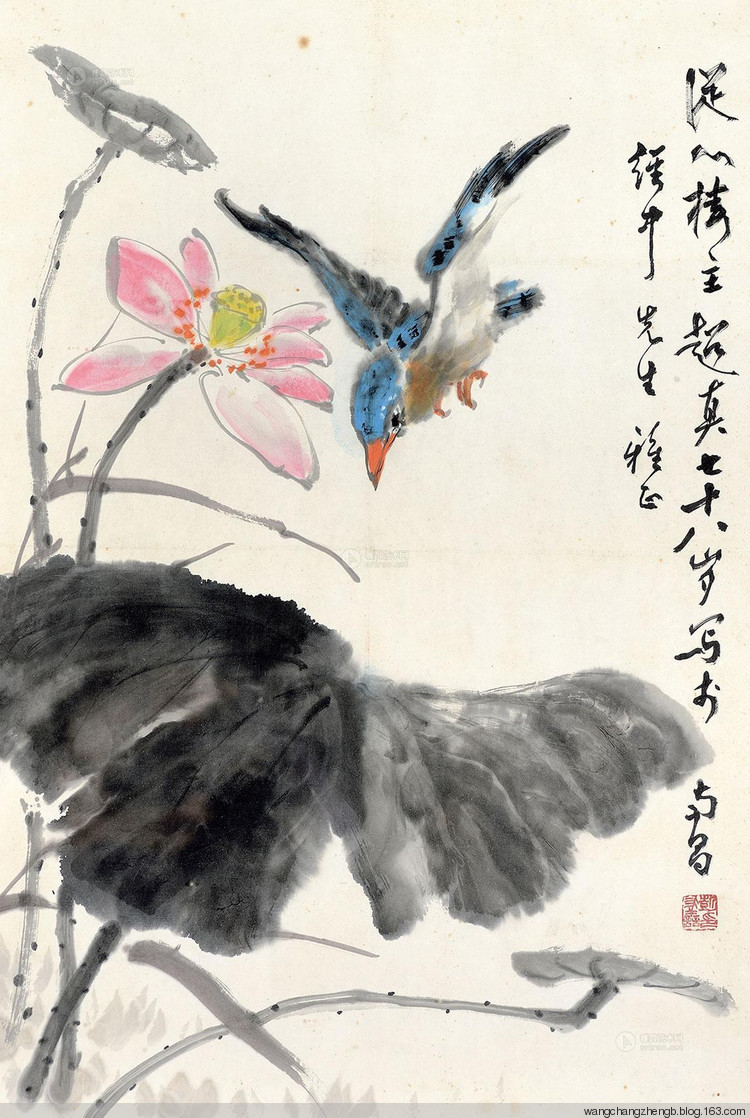 從心楼主超真七十八岁写于南昌
經中先生雅正
wangchangzhengb.blog.163.com